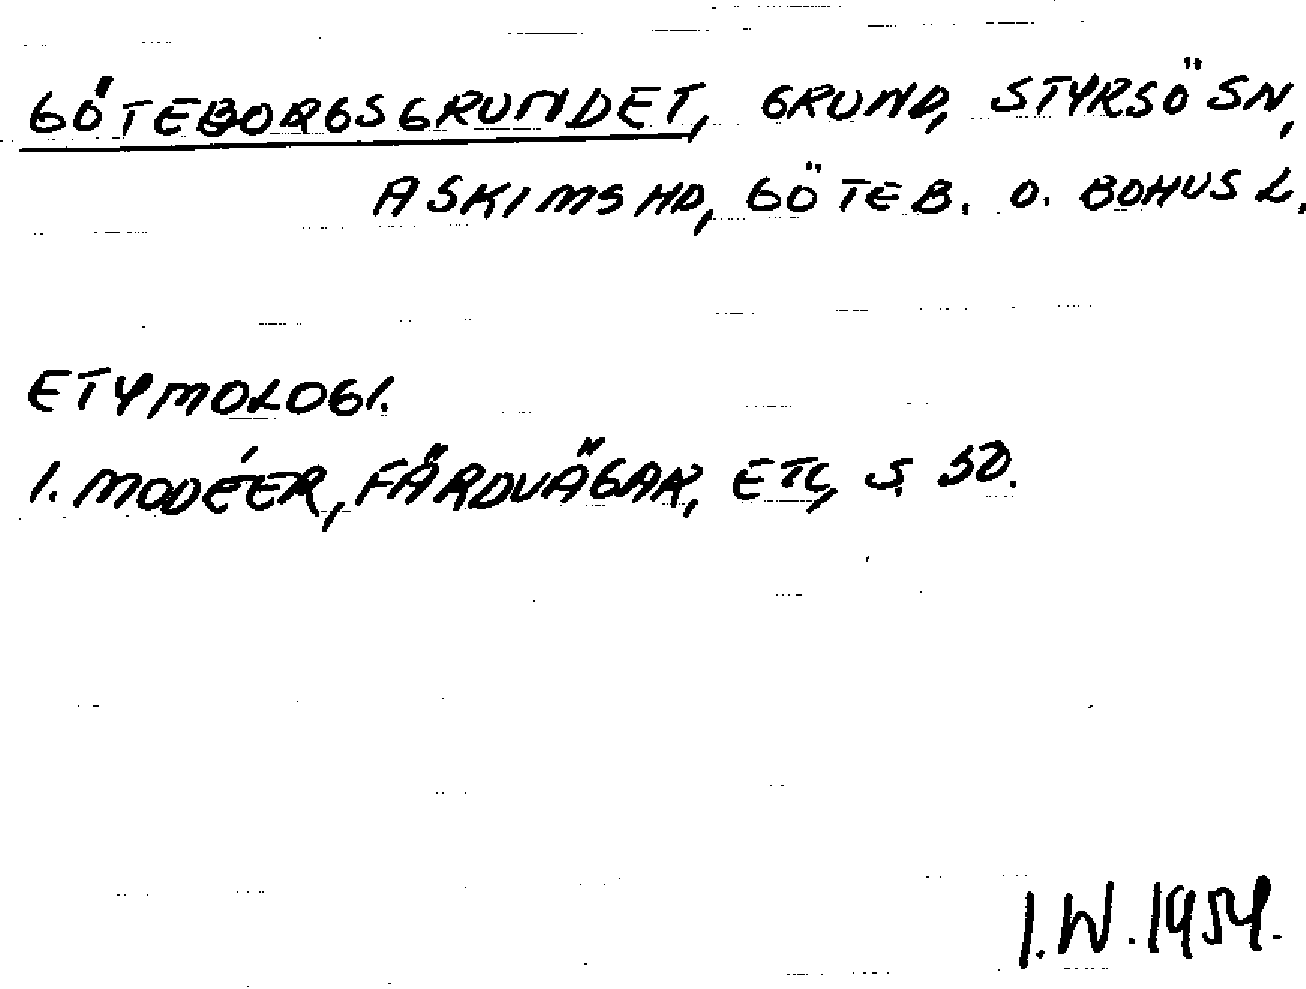 GÖTEBORGSGRUNDET, GRUND, STYRSÖ SN,
ASKIMS HD, GÖTEB. O. BOHUS L.
ETYMOLOGI.
1. MODÉER, FÄRDVÄGAR, ETC, S. 50.
I.W. 1954.